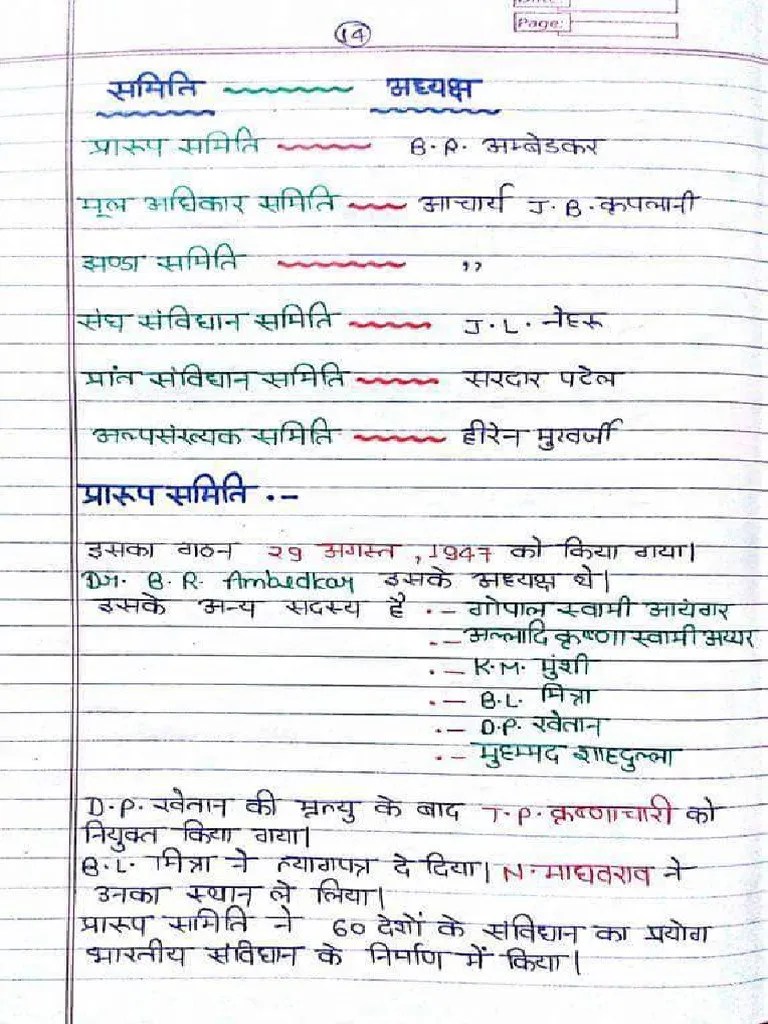 Page:
14
समिति अध्यक्ष
प्रारूप समिति B.R. अम्बेडकर
मूल अधिकार समिति आचार्य J.B. कृपलानी
झण्डा समिति ,,
संघ संविधान समिति J.L. नेहरू
प्रांत संविधान समिति सरदार पटेल
अल्पसंख्यक समिति हीरेन मुखर्जी
प्रारूप समिति .-
इसका गठन 29 अगस्त, 1947 को किया गया।
Dr. B. R. Ambedkar इसके अध्यक्ष थे।
इसके अन्य सदस्य है .- गोपाल स्वामी आयंगर
.- अल्लादि कृष्णा स्वामी अय्यर
.- K.M. मुंशी
.- B.L. मित्रा
.- D.P. खेतान
.- मुहम्मद शाहदुल्ला
D.P. खेतान की मृत्यु के बाद T.P. कृष्णाचारी को
नियुक्त किया गया।
B.L. मित्रा ने त्यागपत्र दे दिया। N. माधवराव ने
उनका स्थान ले लिया।
प्रारूप समिति ने 60 देशों के संविधान का प्रयोग
भारतीय संविधान के निर्माण में किया।